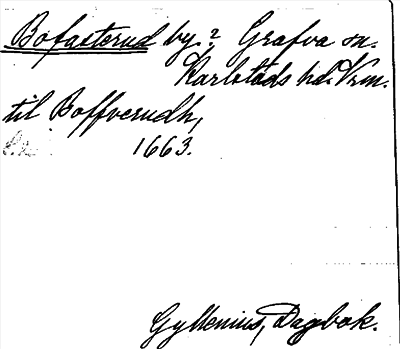 Bofasterud by? Grafva sn.
Karlstads hd. Vrm.
til Boffverudh,
1663.
Gyllenius, Dagbok.